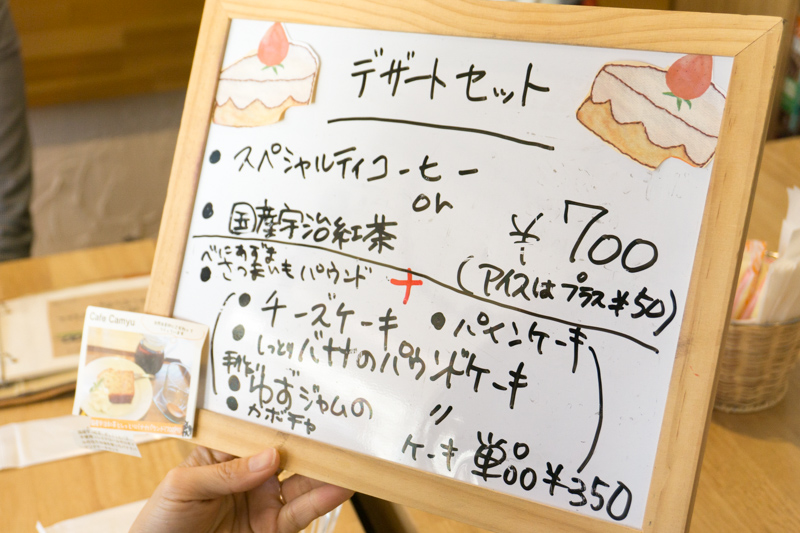 デザートセット
・スペシャルティコーヒー
or
・国産宇治紅茶
¥700
(アイスはプラス¥50)
べにあずま
・さつまいもパウンド
+
・チーズケーキ ・パインケーキ
・しっとりバナナのパウンドケーキ
手作り
・ゆずジャムの 〃
・カボチャ
ケーキ単品¥350
Cafe Camyu